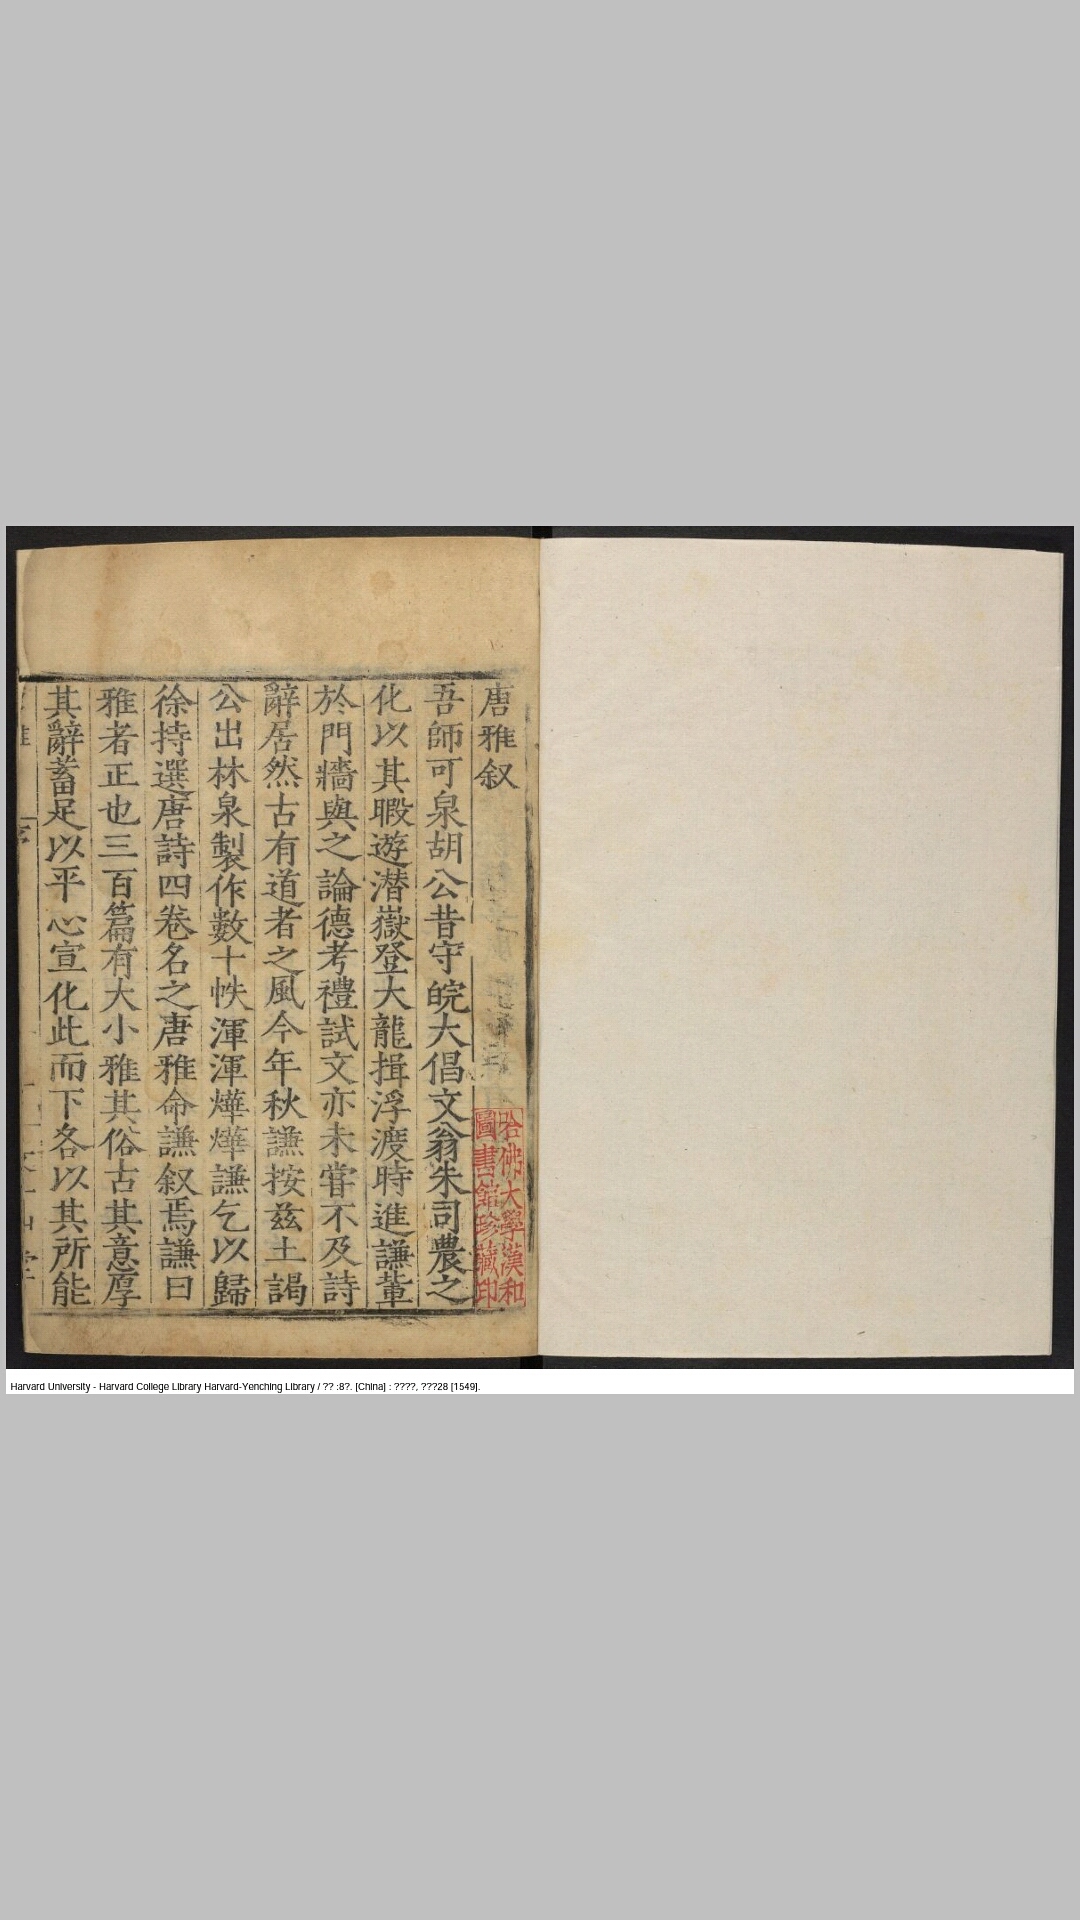 唐雅叙
吾師可泉胡公昔守皖大倡文翁朱司農之
化以其暇遊潜嶽登大龍揖浮渡時進謙輩
於門牆與之論德考禮試文亦未甞不及詩
辭居然古有道者之風今年秋謙按茲土謁
公出林泉製作數十帙渾渾燁燁謙乞以歸
徐持選唐詩四卷名之唐雅命謙叙焉謙曰
雅者正也三百篇有大小雅其俗古其意厚
其辭蓄足以平心宣化此而下各以其所能
哈佛大學漢和
圖書館珍藏印
Harvard University - Harvard College Library Harvard-Yenching Library / ?? :8?. [China] : ????, ???28 [1549].